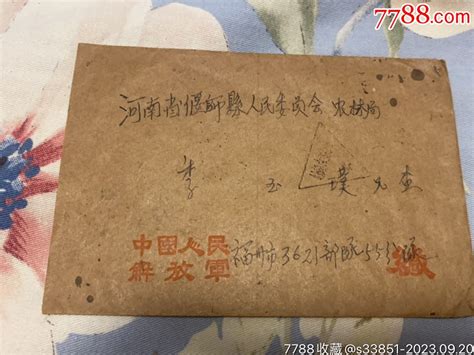 7788.com
河南省偃師縣人民委员会 农林局
李 玉 璞 兄 查
中國人民
解放軍
福州市3621部隊55分队 缄
7788收藏@s33851-2023.09.20